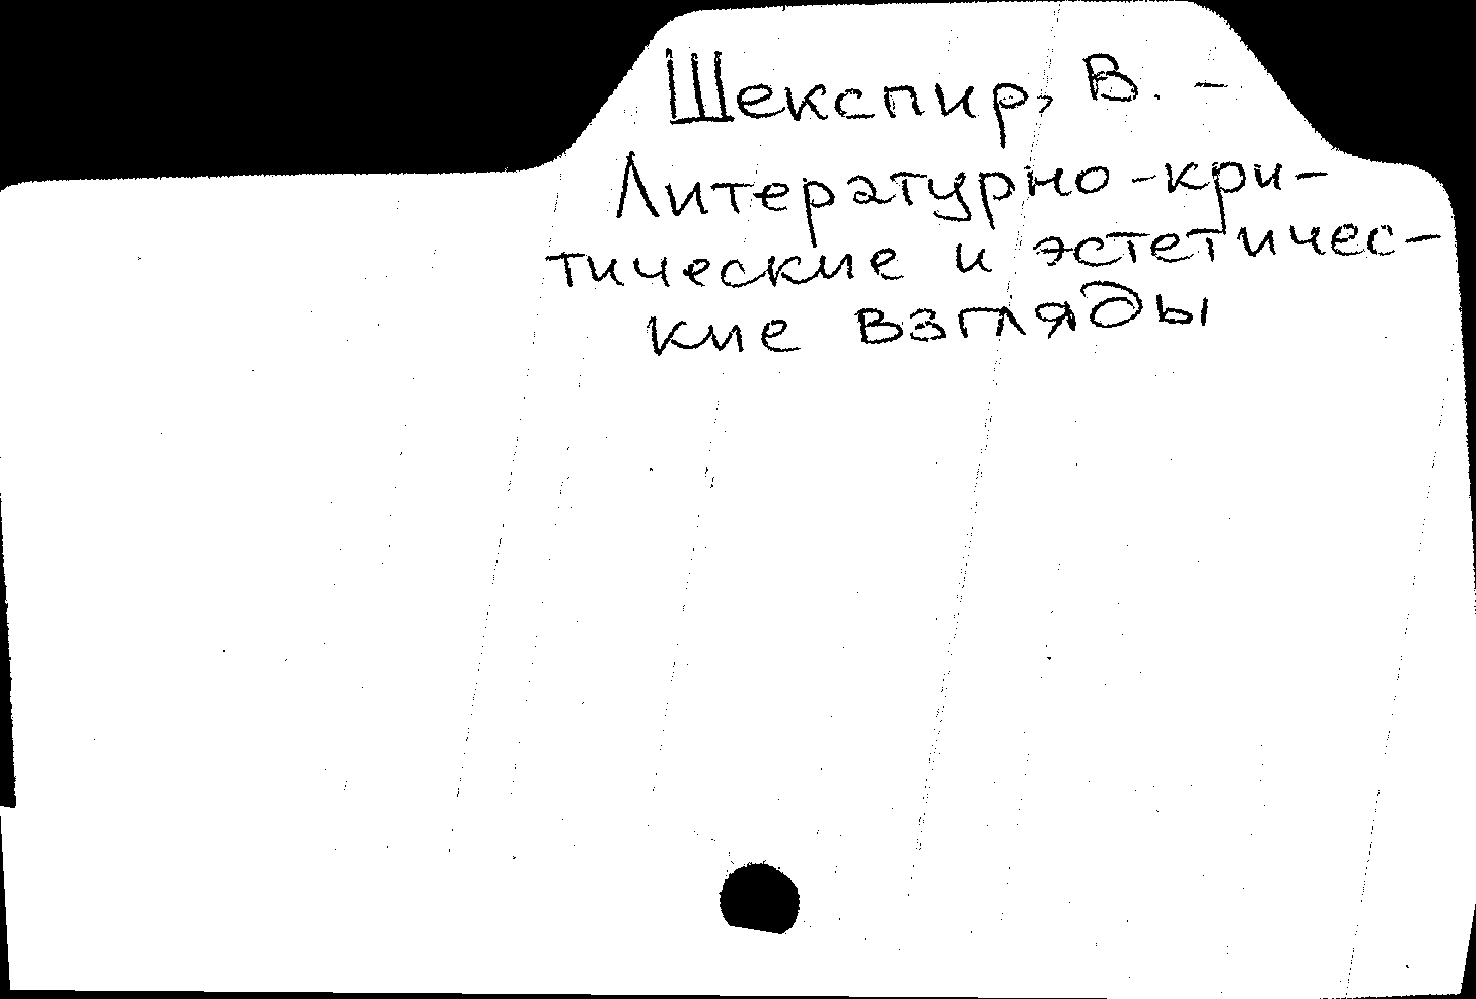 Шекспир, В. –
Литературно-кри-
тические и эстетичес-
кие взгляды